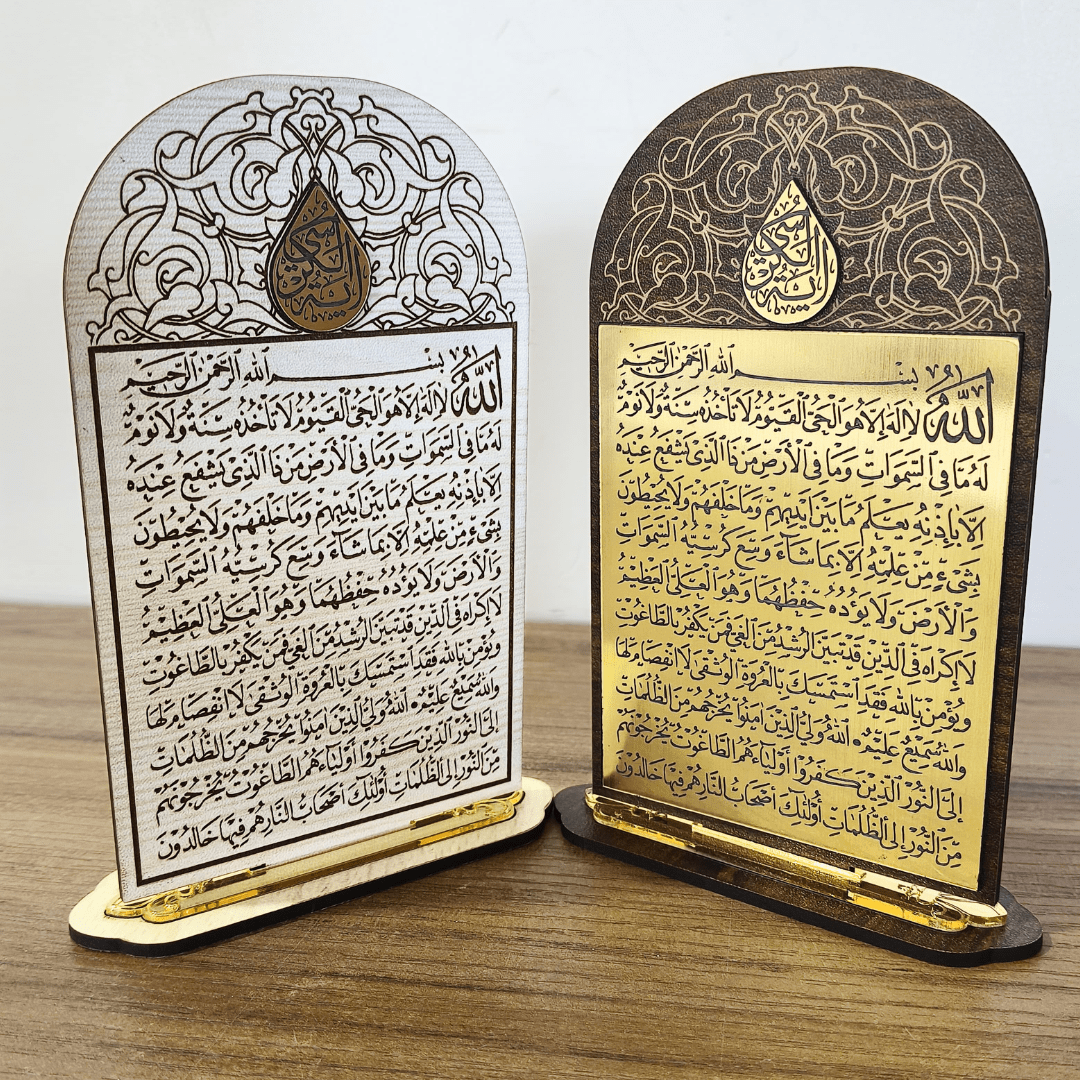 اٰية الكرسي
بِسْمِ اللهِ الرَّحْمٰنِ الرَّحِيْمِ
اَللّٰهُ لَا اِلٰهَ اِلَّا هُوَ الْحَيُّ الْقَيُّوْمُ لَا تَأْخُذُهُ سِنَةٌ وَلَا نَوْمٌ
لَهُ مَا فِي السَّمٰوَاتِ وَمَا فِي الْاَرْضِ مَنْ ذَا الَّذِيْ يَشْفَعُ عِنْدَهُ
اِلَّا بِاِذْنِهِ يَعْلَمُ مَا بَيْنَ اَيْدِيْهِمْ وَمَا خَلْفَهُمْ وَلَا يُحِيْطُوْنَ
بِشَيْءٍ مِنْ عِلْمِهِ اِلَّا بِمَا شَاءَ وَسِعَ كُرْسِيُّهُ السَّمٰوَاتِ
وَالْاَرْضَ وَلَا يَؤُدُهُ حِفْظُهُمَا وَهُوَ الْعَلِيُّ الْعَظِيْمُ
لَا اِكْرَاهَ فِي الدِّيْنِ قَدْ تَبَيَّنَ الرُّشْدُ مِنَ الْغَيِّ فَمَنْ يَكْفُرْ بِالطَّاغُوْتِ
وَيُؤْمِنْ بِاللهِ فَقَدِ اسْتَمْسَكَ بِالْعُرْوَةِ الْوُثْقٰى لَا انْفِصَامَ لَهَا
وَاللهُ سَمِيْعٌ عَلِيْمٌ اَللهُ وَلِيُّ الَّذِيْنَ اٰمَنُوْا يُخْرِجُهُمْ مِنَ الظُّلُمَاتِ
اِلَى النُّوْرِ الَّذِيْنَ كَفَرُوْا اَوْلِيَاءُهُمُ الطَّاغُوْتُ يُخْرِجُوْنَهُمْ
مِنَ النُّوْرِ اِلَى الظُّلُمَاتِ اُولٰئِكَ اَصْحَابُ النَّارِ هُمْ فِيْهَا خَالِدُوْنَ
اٰية الكرسي
بِسْمِ اللهِ الرَّحْمٰنِ الرَّحِيْمِ
اَللّٰهُ لَا اِلٰهَ اِلَّا هُوَ الْحَيُّ الْقَيُّوْمُ لَا تَأْخُذُهُ سِنَةٌ وَلَا نَوْمٌ
لَهُ مَا فِي السَّمٰوَاتِ وَمَا فِي الْاَرْضِ مَنْ ذَا الَّذِيْ يَشْفَعُ عِنْدَهُ
اِلَّا بِاِذْنِهِ يَعْلَمُ مَا بَيْنَ اَيْدِيْهِمْ وَمَا خَلْفَهُمْ وَلَا يُحِيْطُوْنَ
بِشَيْءٍ مِنْ عِلْمِهِ اِلَّا بِمَا شَاءَ وَسِعَ كُرْسِيُّهُ السَّمٰوَاتِ
وَالْاَرْضَ وَلَا يَؤُدُهُ حِفْظُهُمَا وَهُوَ الْعَلِيُّ الْعَظِيْمُ
لَا اِكْرَاهَ فِي الدِّيْنِ قَدْ تَبَيَّنَ الرُّشْدُ مِنَ الْغَيِّ فَمَنْ يَكْفُرْ بِالطَّاغُوْتِ
وَيُؤْمِنْ بِاللهِ فَقَدِ اسْتَمْسَكَ بِالْعُرْوَةِ الْوُثْقٰى لَا انْفِصَامَ لَهَا
وَاللهُ سَمِيْعٌ عَلِيْمٌ اَللهُ وَلِيُّ الَّذِيْنَ اٰمَنُوْا يُخْرِجُهُمْ مِنَ الظُّلُمَاتِ
اِلَى النُّوْرِ الَّذِيْنَ كَفَرُوْا اَوْلِيَاءُهُمُ الطَّاغُوْتُ يُخْرِجُوْنَهُمْ
مِنَ النُّوْرِ اِلَى الظُّلُمَاتِ اُولٰئِكَ اَصْحَابُ النَّارِ هُمْ فِيْهَا خَالِدُوْنَ